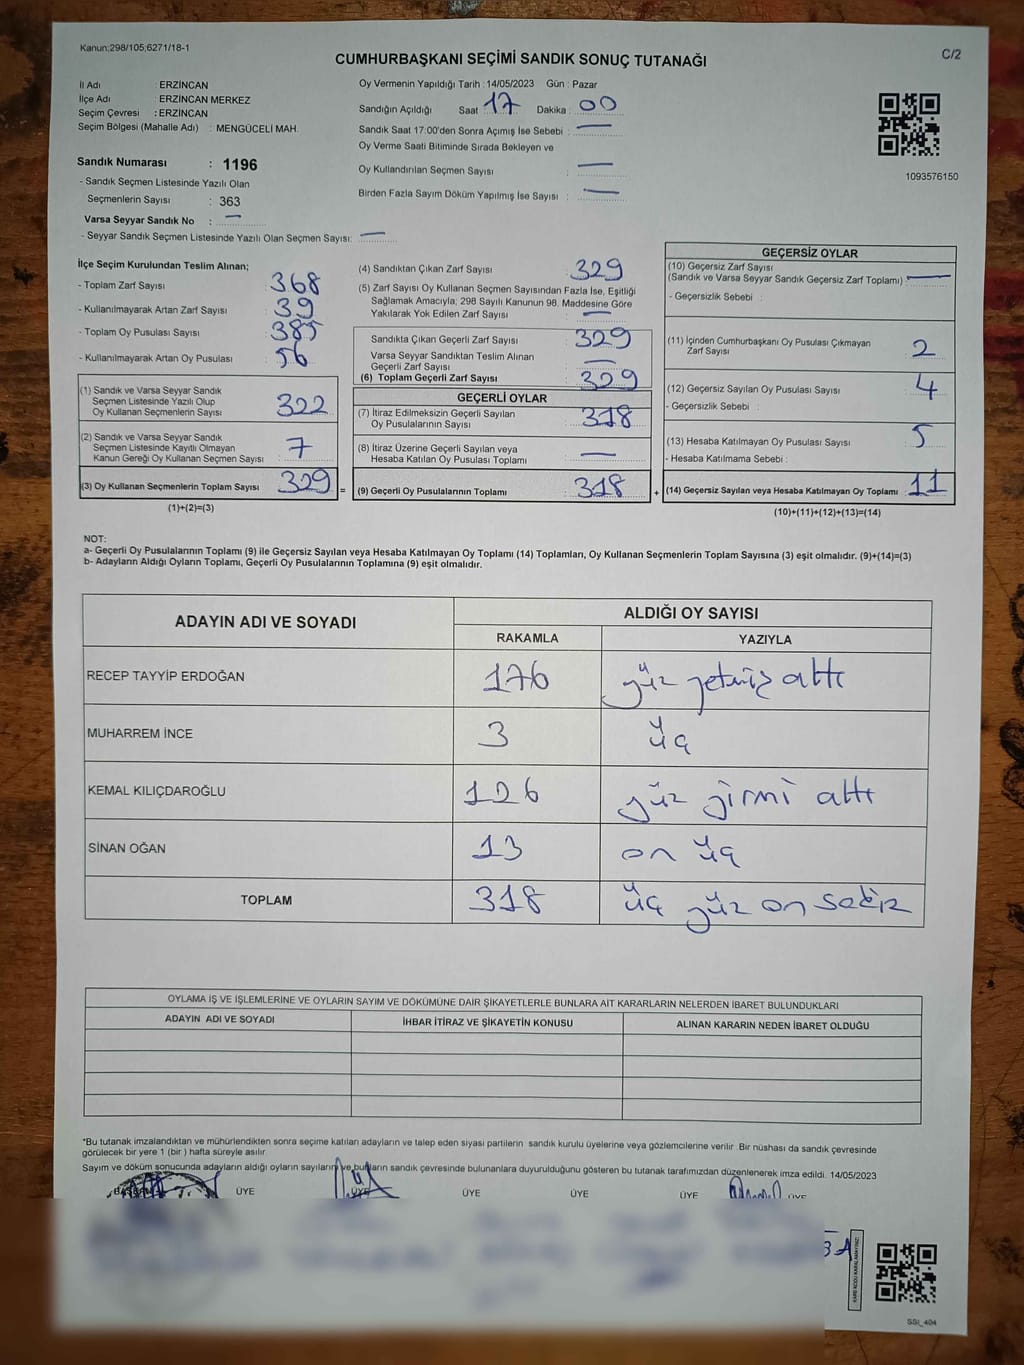 Kanun;298/105;6271/18-1
C/2
CUMHURBAŞKANI SEÇİMİ SANDIK SONUÇ TUTANAĞI
İl Adı : ERZİNCAN
İlçe Adı : ERZİNCAN MERKEZ
Seçim Çevresi : ERZİNCAN
Seçim Bölgesi (Mahalle Adı) : MENGÜCELİ MAH.
Sandık Numarası : 1196
- Sandık Seçmen Listesinde Yazılı Olan
Seçmenlerin Sayısı : 363
Varsa Seyyar Sandık No : —
- Seyyar Sandık Seçmen Listesinde Yazılı Olan Seçmen Sayısı: —
Oy Vermenin Yapıldığı Tarih : 14/05/2023 Gün : Pazar
Sandığın Açıldığı Saat 17 Dakika : 00
Sandık Saat 17:00'den Sonra Açımış İse Sebebi : —
Oy Verme Saati Bitiminde Sırada Bekleyen ve
Oy Kullandırılan Seçmen Sayısı : —
Birden Fazla Sayım Döküm Yapılmış İse Sayısı : —
1093576150
İlçe Seçim Kurulundan Teslim Alınan;
- Toplam Zarf Sayısı : 368
- Kullanılmayarak Artan Zarf Sayısı : 39
- Toplam Oy Pusulası Sayısı : 385
- Kullanılmayarak Artan Oy Pusulası : 56
(1) Sandık ve Varsa Seyyar Sandık
Seçmen Listesinde Yazılı Olup
Oy Kullanan Seçmenlerin Sayısı : 322
(2) Sandık ve Varsa Seyyar Sandık
Seçmen Listesinde Kayıtlı Olmayan
Kanun Gereği Oy Kullanan Seçmen Sayısı : 7
(3) Oy Kullanan Seçmenlerin Toplam Sayısı : 329 =
(1)+(2)=(3)
(4) Sandıktan Çıkan Zarf Sayısı : 329
(5) Zarf Sayısı Oy Kullanan Seçmen Sayısından Fazla İse, Eşitliği
Sağlamak Amacıyla; 298 Sayılı Kanunun 98. Maddesine Göre
Yakılarak Yok Edilen Zarf Sayısı : —
Sandıkta Çıkan Geçerli Zarf Sayısı : 329
Varsa Seyyar Sandıktan Teslim Alınan
Geçerli Zarf Sayısı : —
(6) Toplam Geçerli Zarf Sayısı : 329
GEÇERLİ OYLAR
(7) İtiraz Edilmeksizin Geçerli Sayılan
Oy Pusulalarının Sayısı : 318
(8) İtiraz Üzerine Geçerli Sayılan veya
Hesaba Katılan Oy Pusulası Toplamı : —
(9) Geçerli Oy Pusulalarının Toplamı : 318 +
GEÇERSİZ OYLAR
(10) Geçersiz Zarf Sayısı
(Sandık ve Varsa Seyyar Sandık Geçersiz Zarf Toplamı) : —
- Geçersizlik Sebebi :
(11) İçinden Cumhurbaşkanı Oy Pusulası Çıkmayan
Zarf Sayısı : 2
(12) Geçersiz Sayılan Oy Pusulası Sayısı : 4
- Geçersizlik Sebebi :
(13) Hesaba Katılmayan Oy Pusulası Sayısı : 5
- Hesaba Katılmama Sebebi :
(14) Geçersiz Sayılan veya Hesaba Katılmayan Oy Toplamı : 11
(10)+(11)+(12)+(13)=(14)
NOT:
a- Geçerli Oy Pusulalarının Toplamı (9) ile Geçersiz Sayılan veya Hesaba Katılmayan Oy Toplamı (14) Toplamları, Oy Kullanan Seçmenlerin Toplam Sayısına (3) eşit olmalıdır. (9)+(14)=(3)
b- Adayların Aldığı Oyların Toplamı, Geçerli Oy Pusulalarının Toplamına (9) eşit olmalıdır.
ADAYIN ADI VE SOYADI
ALDIĞI OY SAYISI
RAKAMLA YAZIYLA
RECEP TAYYİP ERDOĞAN 176 yüz yetmiş altı
MUHARREM İNCE 3 üç
KEMAL KILIÇDAROĞLU 126 yüz yirmi altı
SİNAN OĞAN 13 on üç
TOPLAM 318 üç yüz on sekiz
OYLAMA İŞ VE İŞLEMLERİNE VE OYLARIN SAYIM VE DÖKÜMÜNE DAİR ŞİKAYETLERLE BUNLARA AİT KARARLARIN NELERDEN İBARET BULUNDUKLARI
ADAYIN ADI VE SOYADI İHBAR İTİRAZ VE ŞİKAYETİN KONUSU ALINAN KARARIN NEDEN İBARET OLDUĞU
*Bu tutanak imzalandıktan ve mühürlendikten sonra seçime katılan adayların ve talep eden siyasi partilerin sandık kurulu üyelerine veya gözlemcilerine verilir. Bir nüshası da sandık çevresinde
görülecek bir yere 1 (bir ) hafta süreyle asılır.
Sayım ve döküm sonucunda adayların aldığı oyların sayılarını ve bunların sandık çevresinde bulunanlara duyurulduğunu gösteren bu tutanak tarafımızdan düzenlenerek imza edildi. 14/05/2023
BAŞKAN ÜYE ÜYE ÜYE ÜYE ÜYE ÜYE
KARE KODU KARALAMAYINIZ!
SSI_404